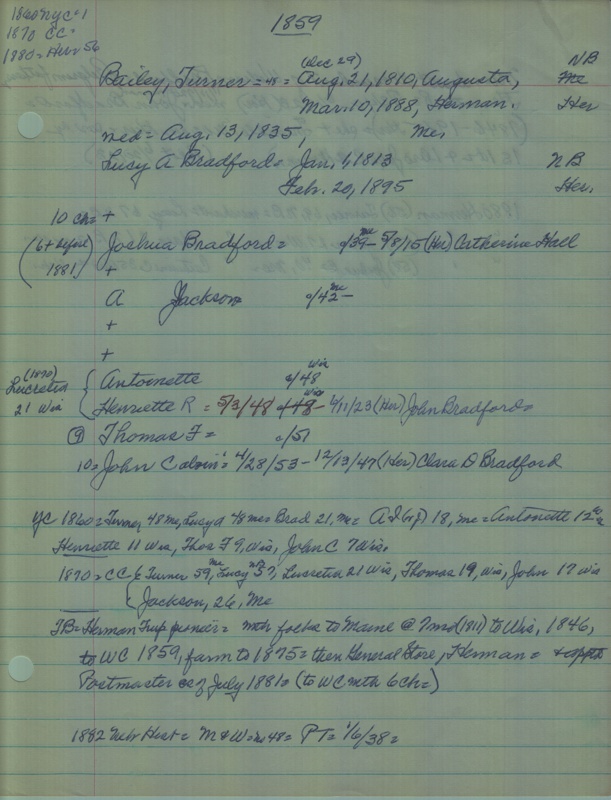 1860 NYC=1
1870 CC=
1880= Her= 56
1859
(Dec 29) NB
Bailey, Turner = 48 = Aug. 21, 1810, Augusta, Me
Mar. 10, 1888, Herman. Her
med= Aug. 13, 1835, Me,
Lucy A Bradford= Jan. 1, 1813 NB
Feb. 20, 1895 Her.
10 ch= +
(6 + before 1881) Joshua Bradford= c/39 Me - 5/8/15 (Her) Catherine Hall
+
A Jackson c/42 Me -
+
+
(1870) Lucretia 21 Wis
Antoinette c/48 Wis
Henriette R = 5/3/48 c/48 Wis - 4/11/23 (Her) John Bradford=
⑨ Thomas F= c/51
10= John Calvin= 4/28/53 - 12/13/47 (Her) Clara D Bradford
YC 1860= Turner 48 Me, Lucy A 48 Me= Brad 21, Me= A J 18, Me= Antonette 12
Henriette 11 Wis, Thos F 9, Wis, John C 7 Wis.
1870= CC Turner 59, Me Lucy 57, Lucretia 21 Wis, Thomas 19, Wis, John 17 Wis
Jackson, 26, Me
TB= Herman Twp pioneer= mth folks to Maine @ 7 mo (1811) to Wis, 1846,
to WC 1859, farm to 1875= then General Store, Herman= + appt
Postmaster as of July 1881= (to WC mth 6 ch=)
1882 Nebr Hist= M & W= 48= PT= 1/6/38=